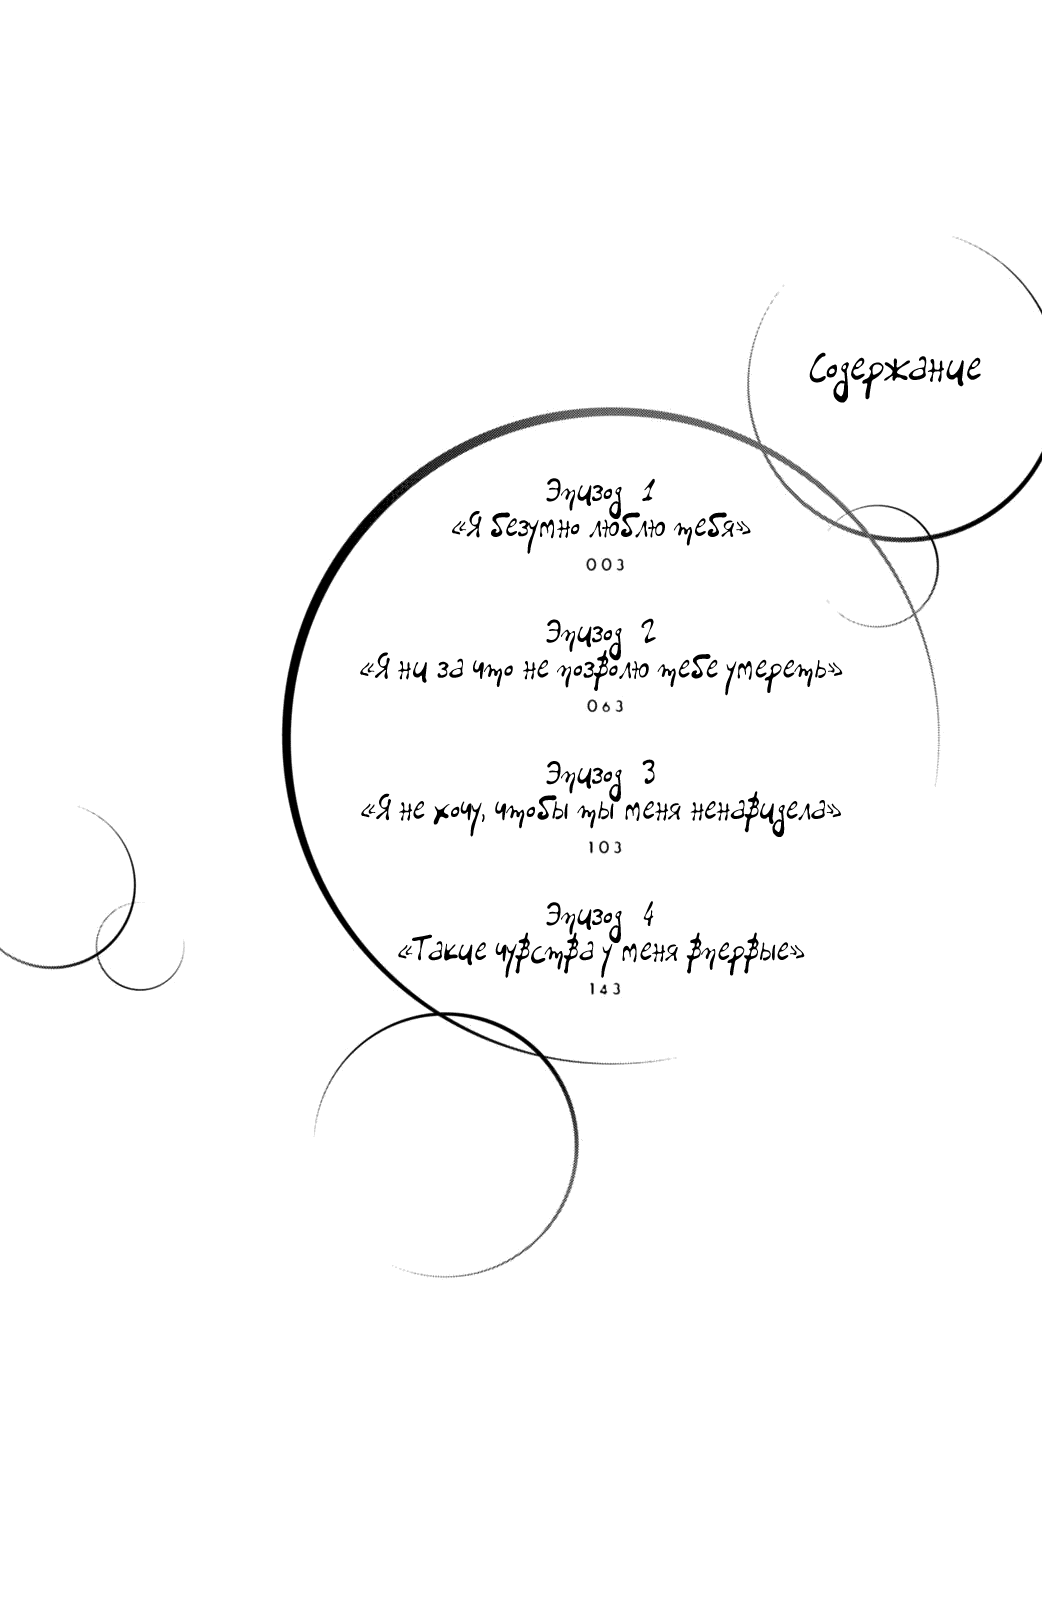 Содержание
Эпизод 1
«Я безумно люблю тебя»
003
Эпизод 2
«Я ни за что не позволю тебе умереть»
063
Эпизод 3
«Я не хочу, чтобы ты меня ненавидела»
103
Эпизод 4
«Такие чувства у меня впервые»
143